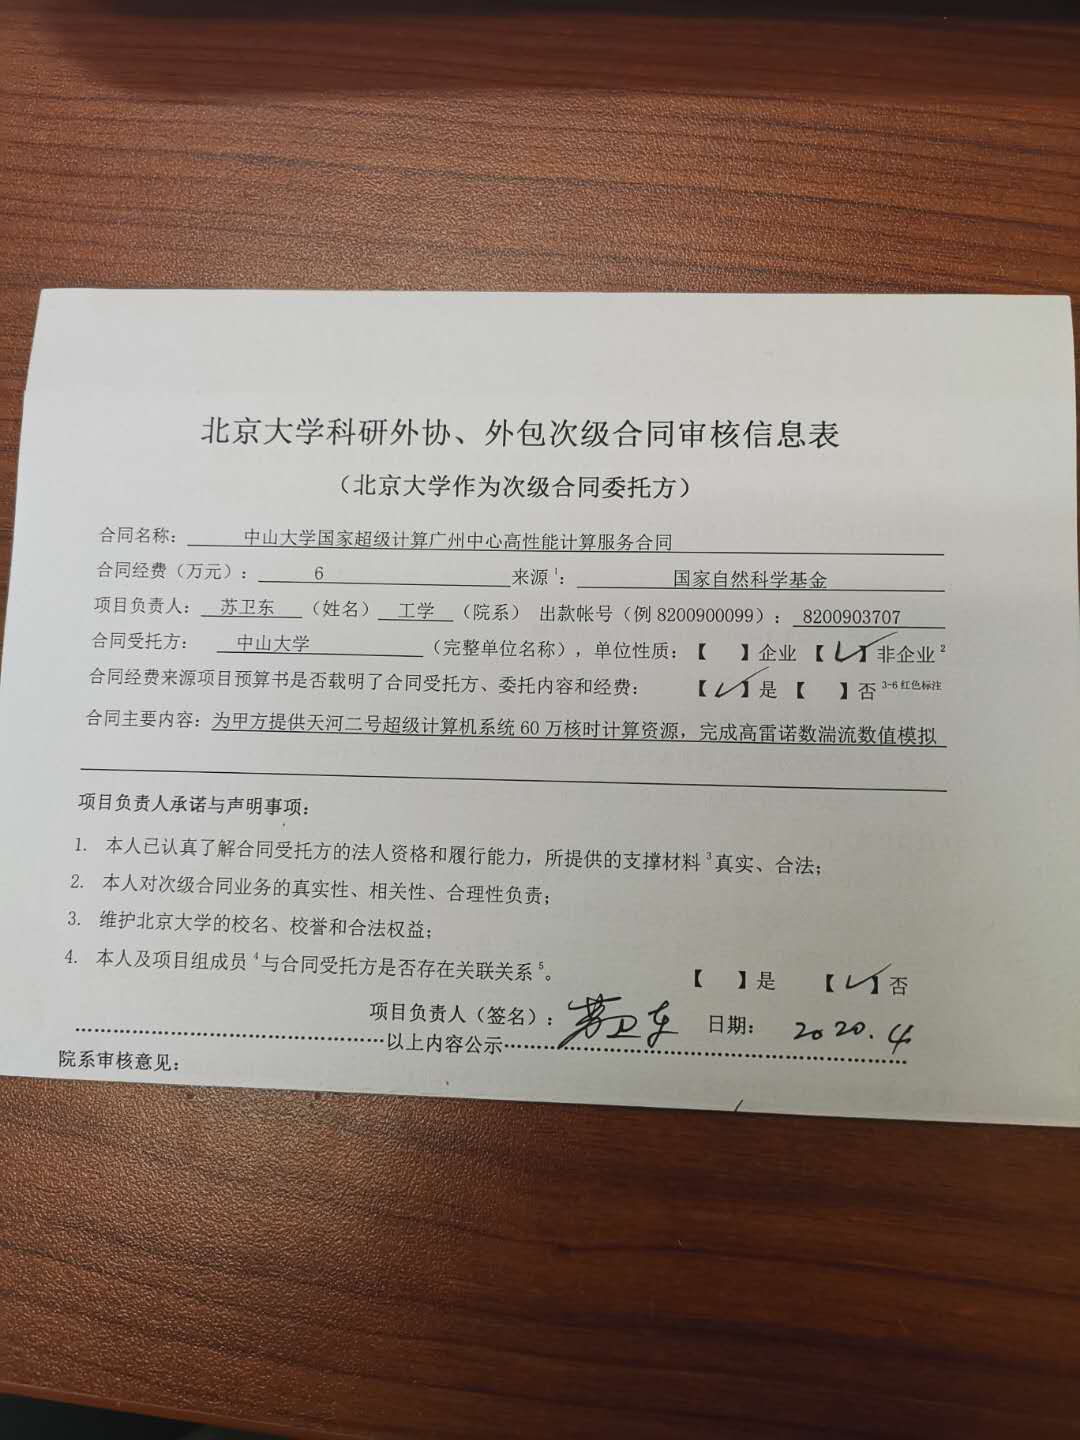 北京大学科研外协、外包次级合同审核信息表
（北京大学作为次级合同委托方）
合同名称： 中山大学国家超级计算广州中心高性能计算服务合同
合同经费（万元）： 6 来源1： 国家自然科学基金
项目负责人： 苏卫东 （姓名） 工学 （院系） 出款帐号（例 8200900099）： 8200903707
合同受托方： 中山大学 （完整单位名称），单位性质：【 】企业 【✓】非企业2
合同经费来源项目预算书是否载明了合同受托方、委托内容和经费： 【✓】是 【 】否 3-6 红色标注
合同主要内容：为甲方提供天河二号超级计算机系统 60 万核时计算资源，完成高雷诺数湍流数值模拟
项目负责人承诺与声明事项：
1. 本人已认真了解合同受托方的法人资格和履行能力，所提供的支撑材料3真实、合法；
2. 本人对次级合同业务的真实性、相关性、合理性负责；
3. 维护北京大学的校名、校誉和合法权益；
4. 本人及项目组成员4与合同受托方是否存在关联关系5。 【 】是 【✓】否
项目负责人（签名）：苏卫东 日期： 2020.4
以上内容公示
院系审核意见：